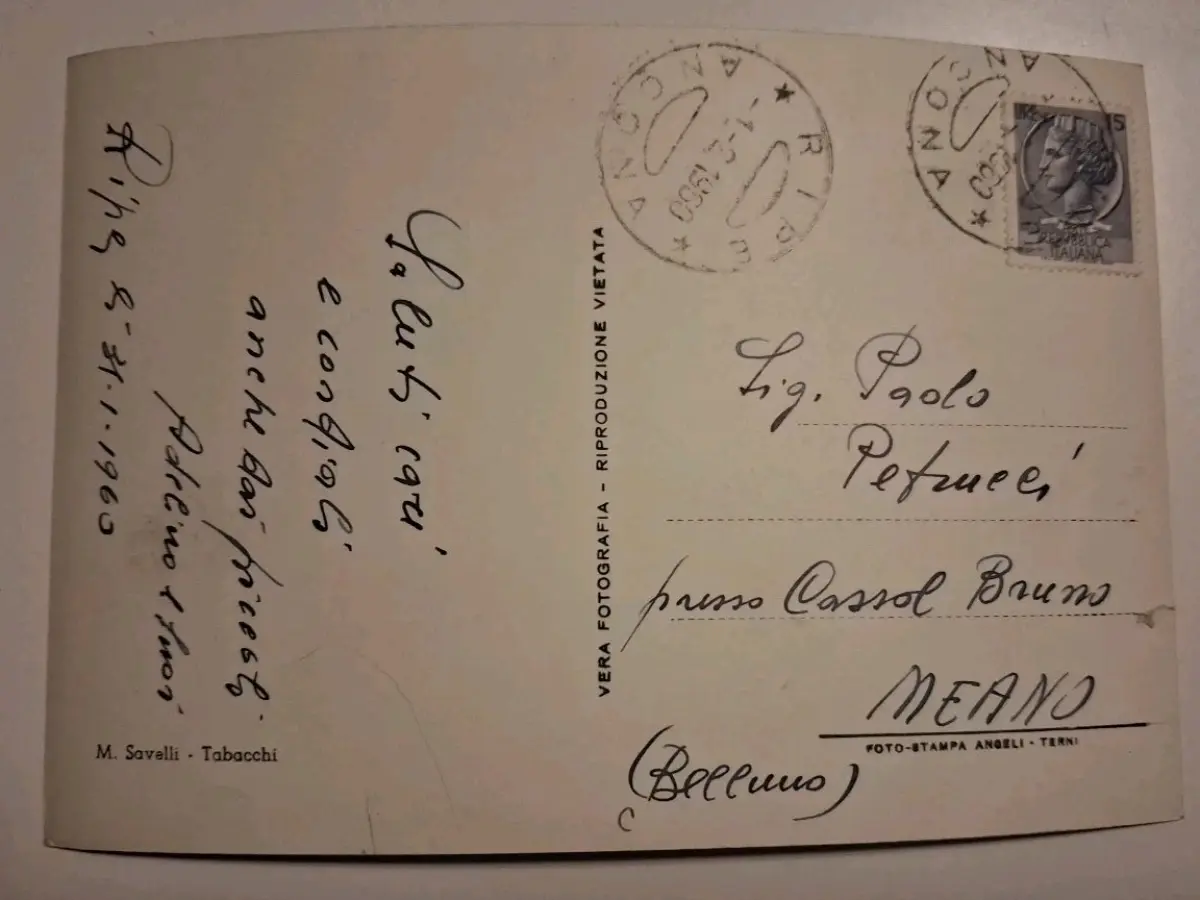 Ripe, lì 31.1.1960
Saluti cari
e cordiali
anche dai
Adelmo e
M. Savelli - Tabacchi
VERA FOTOGRAFIA - RIPRODUZIONE VIETATA
RIPE
ANCONA
-1-2 1960
ANCONA
1960
15
REPUBBLICA
ITALIANA
Sig. Paolo
Petrucci
presso Cassol Bruno
MEANO
FOTO-STAMPA ANGELI - TERNI
(Belluno)